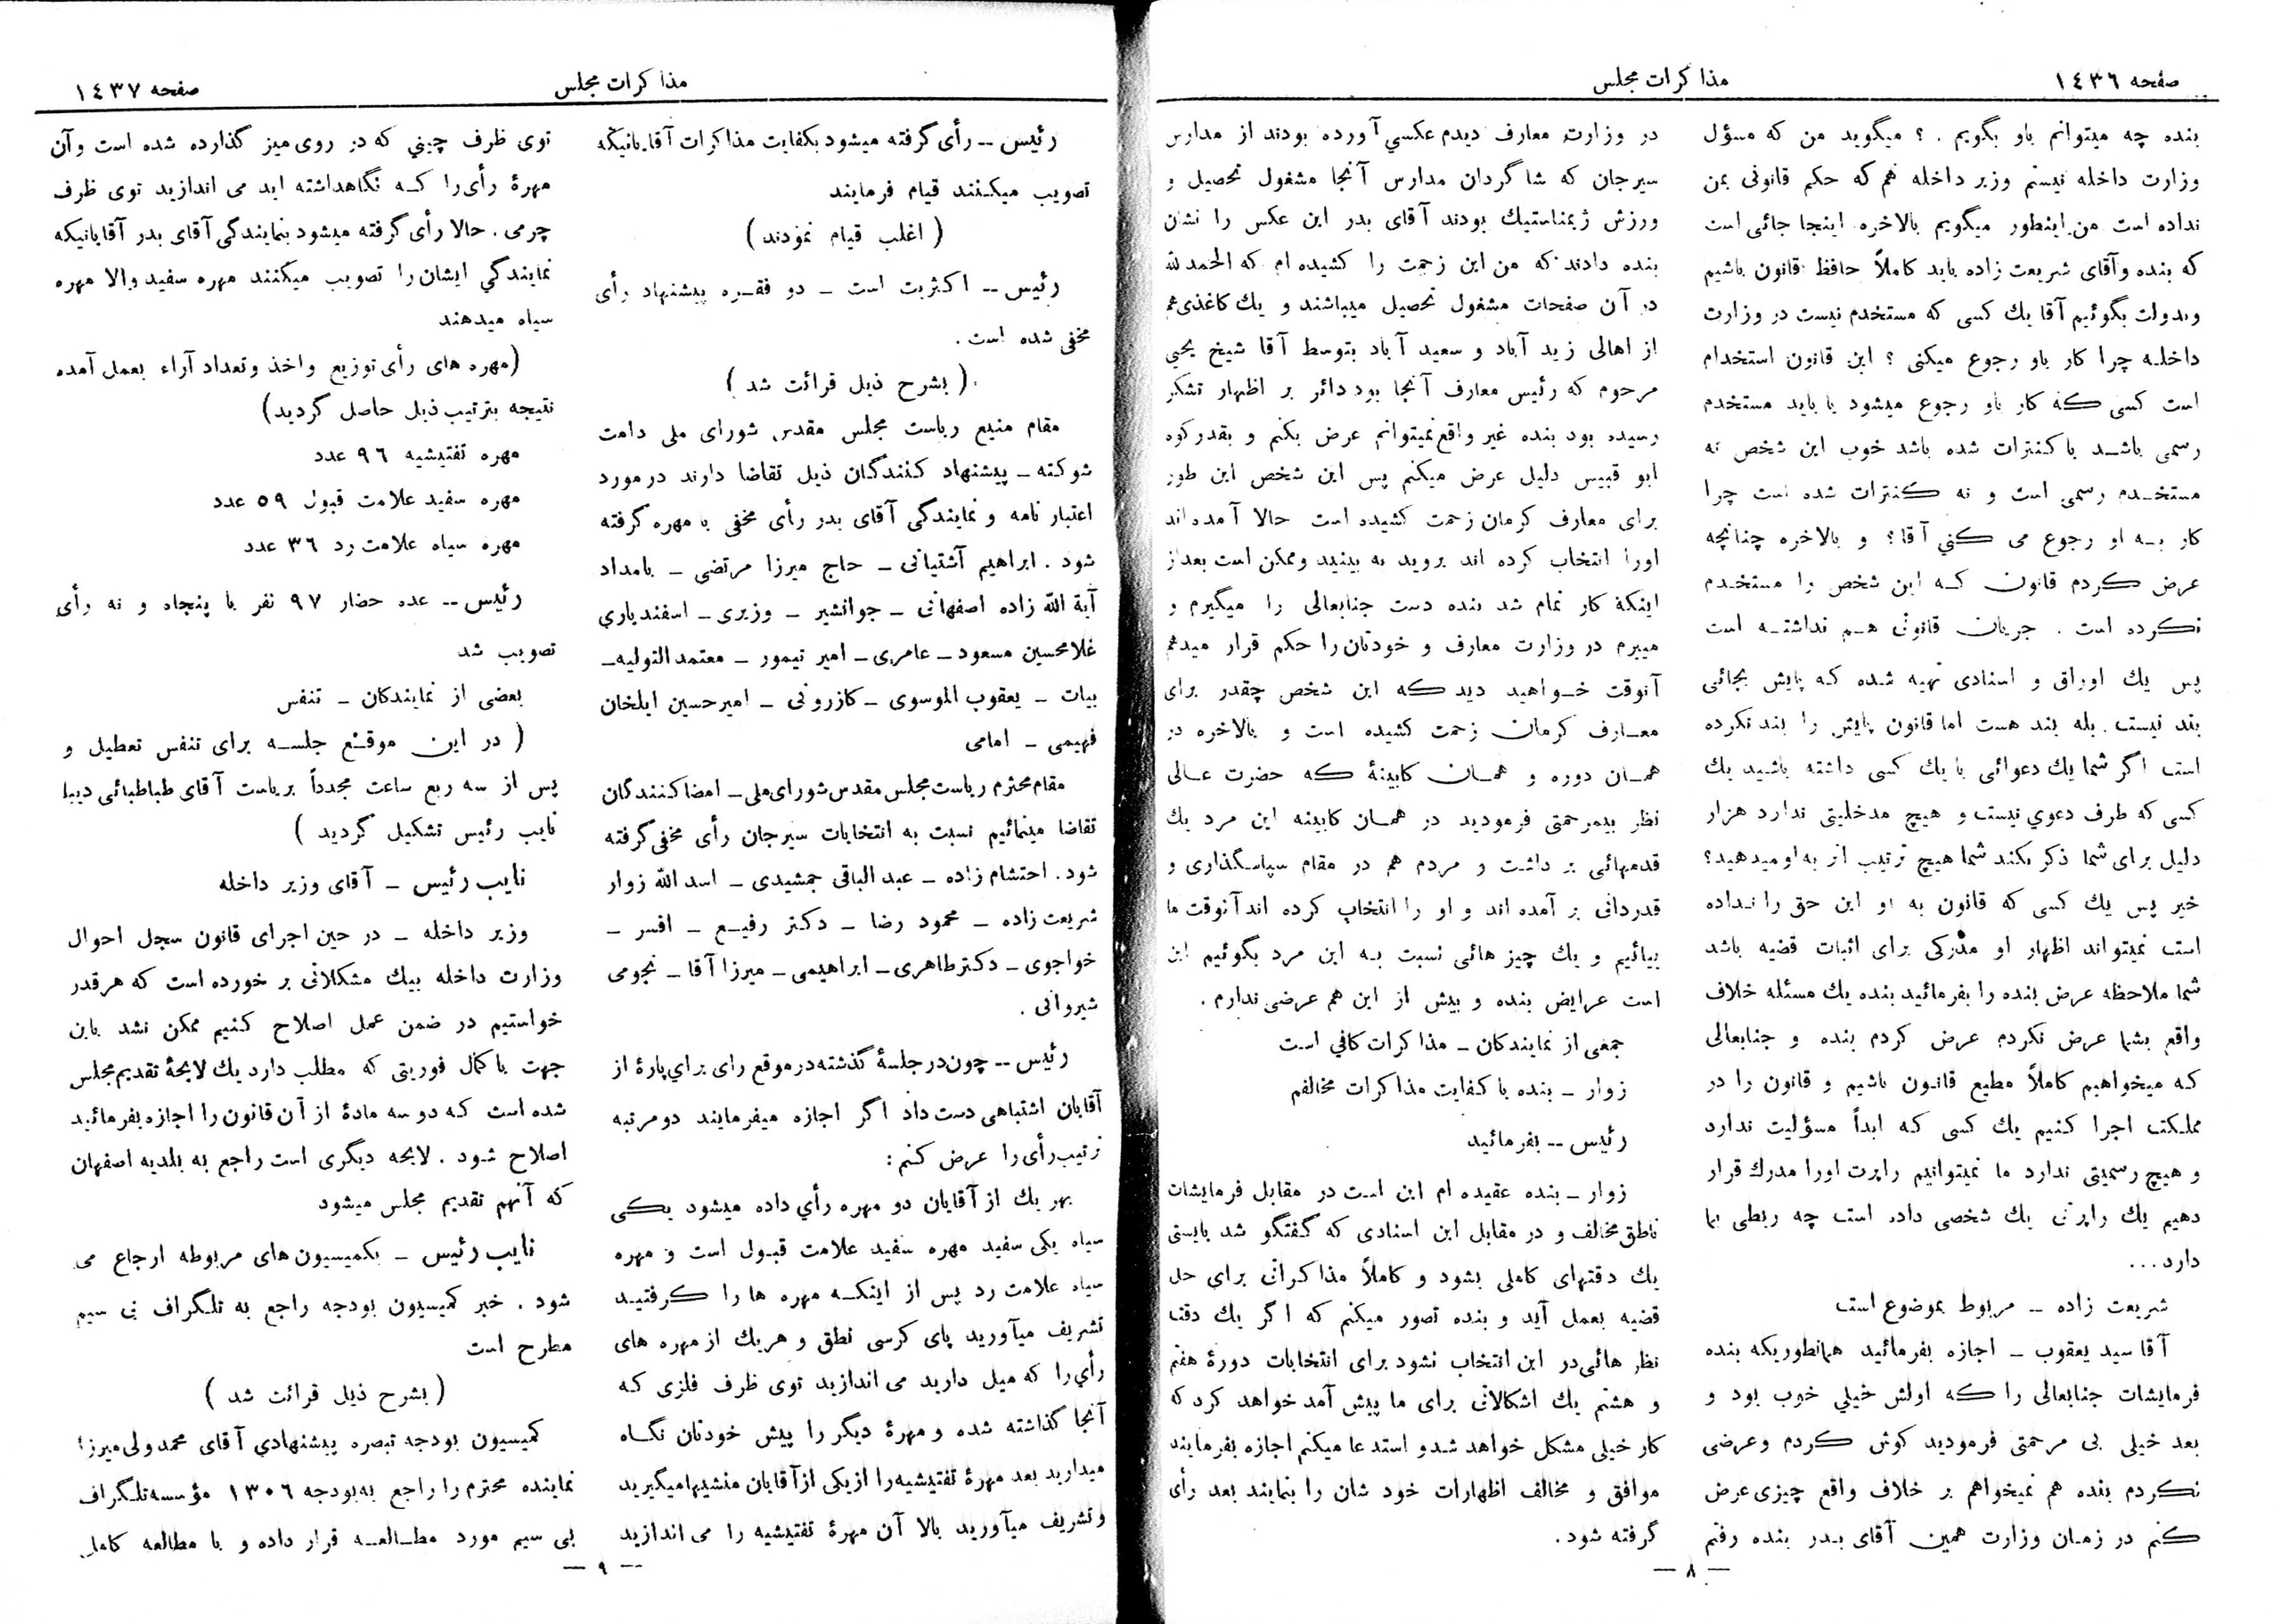 صفحه ١٤٣٦
مذاکرات مجلس
بنده چه میتوانم باو بگویم . ؟ میگوید من که مسؤل
وزارت داخله نیستم وزیر داخله هم که حکم قانونی بمن
نداده است من اینطور میگویم بالاخره اینجا جائی است
که بنده وآقای شریعت زاده باید کاملاً حافظ قانون باشیم
وبدولت بگوئیم آقا یك کسی که مستخدم نیست در وزارت
داخله چرا کار باو رجوع میکنی ؟ این قانون استخدام
است کسی که کار باو رجوع میشود یا باید مستخدم
رسمی باشد یا کنترات شده باشد خوب این شخص نه
مستخدم رسمی است و نه کنترات شده است چرا
کار به او رجوع می کنی آقا؟ و بالاخره چنانچه
عرض کردم قانون که این شخص را مستخدم
نکرده است . جریان قانونی هم نداشته است
پس یك اوراق و اسنادی تهیه شده که پایش بجائی
بند نیست . بله بند هست اما قانون پایش را بند نکرده
است اگر شما یك دعوائی با یك کسی داشته باشید یك
کسی که طرف دعوی نیست و هیچ مدخلیتی ندارد هزار
دلیل برای شما ذکر بکند شما هیچ ترتیب اثر به او میدهید؟
خیر پس یك کسی که قانون به او این حق را نداده
است نمیتواند اظهار او مدرکی برای اثبات قضیه باشد
شما ملاحظه عرض بنده را بفرمائید بنده یك مسئله خلاف
واقع بشما عرض نکردم عرض کردم بنده و جنابعالی
که میخواهیم کاملاً مطیع قانون باشیم و قانون را در
مملکت اجرا کنیم یك کسی که ابداً مسؤلیت ندارد
و هیچ رسمیتی ندارد ما نمیتوانیم راپرت اورا مدرك قرار
دهیم یك راپرتی یك شخصی داده است چه ربطی بما
دارد...
شریعت زاده ــ مربوط بموضوع است
آقا سید یعقوب ــ اجازه بفرمائید همانطوریکه بنده
فرمایشات جنابعالی را که اولش خیلی خوب بود و
بعد خیلی بی مرحمتی فرمودید گوش کردم وعرضی
نکردم بنده هم نمیخواهم بر خلاف واقع چیزی عرض
کنم در زمان وزارت همین آقای بدر بنده رفتم
در وزارت معارف دیدم عکسی آورده بودند از مدارس
سیرجان که شاگردان مدارس آنجا مشغول تحصیل و
ورزش ژیمناستیك بودند آقای بدر این عکس را نشان
بنده دادند که من این زحمت را کشیده ام که الحمدلله
در آن صفحات مشغول تحصیل میباشند و یك کاغذی هم
از اهالی زید آباد و سعید آباد بتوسط آقا شیخ یحیی
مرحوم که رئیس معارف آنجا بود دائر بر اظهار تشکر
رسیده بود بنده غیر واقع نمیتوانم عرض بکنم و بقدر کوه
ابو قبیس دلیل عرض میکنم پس این شخص این طور
برای معارف کرمان زحمت کشیده است حالا آمده اند
اورا انتخاب کرده اند بروید به بینید وممکن است بعد از
اینکه کار تمام شد بنده دست جنابعالی را میگیرم و
میبرم در وزارت معارف و خودتان را حکم قرار میدهم
آنوقت خواهید دید که این شخص چقدر برای
معارف کرمان زحمت کشیده است و بالاخره در
همان دوره و همان کابینهٔ که حضرت عالی
نظر بیمرحمتی فرمودید در همان کابینه این مرد یك
قدمهائی بر داشت و مردم هم در مقام سپاسگذاری و
قدردانی بر آمده اند و او را انتخاب کرده اند آنوقت ما
بیائیم و یك چیز هائی نسبت به این مرد بگوئیم این
است عرایض بنده و بیش از این هم عرضی ندارم .
جمعی از نمایندگان ــ مذاکرات کافی است
زوار ــ بنده با کفایت مذاکرات مخالفم
رئیس ــ بفرمائید
زوار ــ بنده عقیده ام این است در مقابل فرمایشات
ناطق مخالف و در مقابل این اسنادی که گفتگو شد بایستی
یك دقتهای کاملی بشود و کاملاً مذاکراتی برای حل
قضیه بعمل آید و بنده تصور میکنم که اگر یك دقت
نظر هائی در این انتخاب نشود برای انتخابات دورهٔ هفتم
و هشتم یك اشکالاتی برای ما پیش آمد خواهد کرد که
کار خیلی مشکل خواهد شد و استدعا میکنم اجازه بفرمایند
موافق و مخالف اظهارات خود شان را بنمایند بعد رأی
گرفته شود .
— ٨ —
مذاکرات مجلس
صفحه ١٤٣٧
رئیس ــ رأی گرفته میشود بکفایت مذاکرات آقایانیکه
تصویب میکنند قیام فرمایند
( اغلب قیام نمودند )
رئیس ــ اکثریت است ــ دو فقره پیشنهاد رأی
مخفی شده است .
( بشرح ذیل قرائت شد )
مقام منیع ریاست مجلس مقدس شورای ملی دامت
شوکته ــ پیشنهاد کنندگان ذیل تقاضا دارند در مورد
اعتبار نامه و نمایندگی آقای بدر رأی مخفی با مهره گرفته
شود . ابراهیم آشتیانی ــ حاج میرزا مرتضی ــ بامداد
آیة الله زاده اصفهانی ــ جوانشیر ــ وزیری ــ اسفندیاری
غلامحسین مسعود ــ عامری ــ امیر تیمور ــ معتمد التولیه ــ
بیات ــ یعقوب الموسوی ــ کازرونی ــ امیر حسین ایلخان
فهیمی ــ امامی
مقام محترم ریاست مجلس مقدس شورای ملی ــ امضا کنندگان
تقاضا مینمائیم نسبت به انتخابات سیرجان رأی مخفی گرفته
شود . احتشام زاده ــ عبد الباقی جمشیدی ــ اسد الله زوار
شریعت زاده ــ محمود رضا ــ دکتر رفیع ــ افسر ــ
خواجوی ــ دکتر طاهری ــ ابراهیمی ــ میرزا آقا ــ نجومی
شیروانی .
رئیس ــ چون در جلسهٔ گذشته در موقع رای برای پارهٔ از
آقایان اشتباهی دست داد اگر اجازه میفرمایند دو مرتبه
ترتیب رأی را عرض کنم :
بهر یك از آقایان دو مهره رأی داده میشود یکی
سیاه یکی سفید مهره سفید علامت قبول است و مهره
سیاه علامت رد پس از اینکه مهره ها را گرفتید
تشریف میآورید پای کرسی نطق و هر یك از مهره های
رأی را که میل دارید می اندازید توی ظرف فلزی که
آنجا گذاشته شده و مهرهٔ دیگر را پیش خودتان نگاه
میدارید بعد مهرهٔ تفتیشیه را از یکی از آقایان منشیها میگیرید
و تشریف میآورید بالا آن مهرهٔ تفتیشیه را می اندازید
توی ظرف چینی که در روی میز گذارده شده است وآن
مهرهٔ رأی را که نگاهداشته اید می اندازید توی ظرف
چرمی . حالا رأی گرفته میشود بنمایندگی آقای بدر آقایانیکه
نمایندگی ایشان را تصویب میکنند مهره سفید والا مهره
سیاه میدهند
(مهره های رأی توزیع واخذ وتعداد آراء بعمل آمده
نتیجه بترتیب ذیل حاصل گردید)
مهره تفتیشیه ٩٦ عدد
مهره سفید علامت قبول ٥٩ عدد
مهره سیاه علامت رد ٣٦ عدد
رئیس ــ عده حضار ٩٧ نفر با پنجاه و نه رأی
تصویب شد
بعضی از نمایندگان ــ تنفس
( در این موقع جلسه برای تنفس تعطیل و
پس از سه ربع ساعت مجدداً بریاست آقای طباطبائی دیبا
نایب رئیس تشکیل گردید )
نایب رئیس ــ آقای وزیر داخله
وزیر داخله ــ در حین اجرای قانون سجل احوال
وزارت داخله بیك مشکلاتی بر خورده است که هر قدر
خواستیم در ضمن عمل اصلاح کنیم ممکن نشد باین
جهت با کمال فوریتی که مطلب دارد یك لایحهٔ تقدیم مجلس
شده است که دو سه مادهٔ از آن قانون را اجازه بفرمائید
اصلاح شود . لایحه دیگری است راجع به بلدیه اصفهان
که آنهم تقدیم مجلس میشود
نایب رئیس ــ بکمیسیون های مربوطه ارجاع می
شود . خبر کمیسیون بودجه راجع به تلگراف بی سیم
مطرح است
( بشرح ذیل قرائت شد )
کمیسیون بودجه تبصره پیشنهادی آقای محمد ولی میرزا
نماینده محترم را راجع به بودجه ١٣٠٦ مؤسسه تلگراف
بی سیم مورد مطالعه قرار داده و با مطالعه کامل
— ٩ —